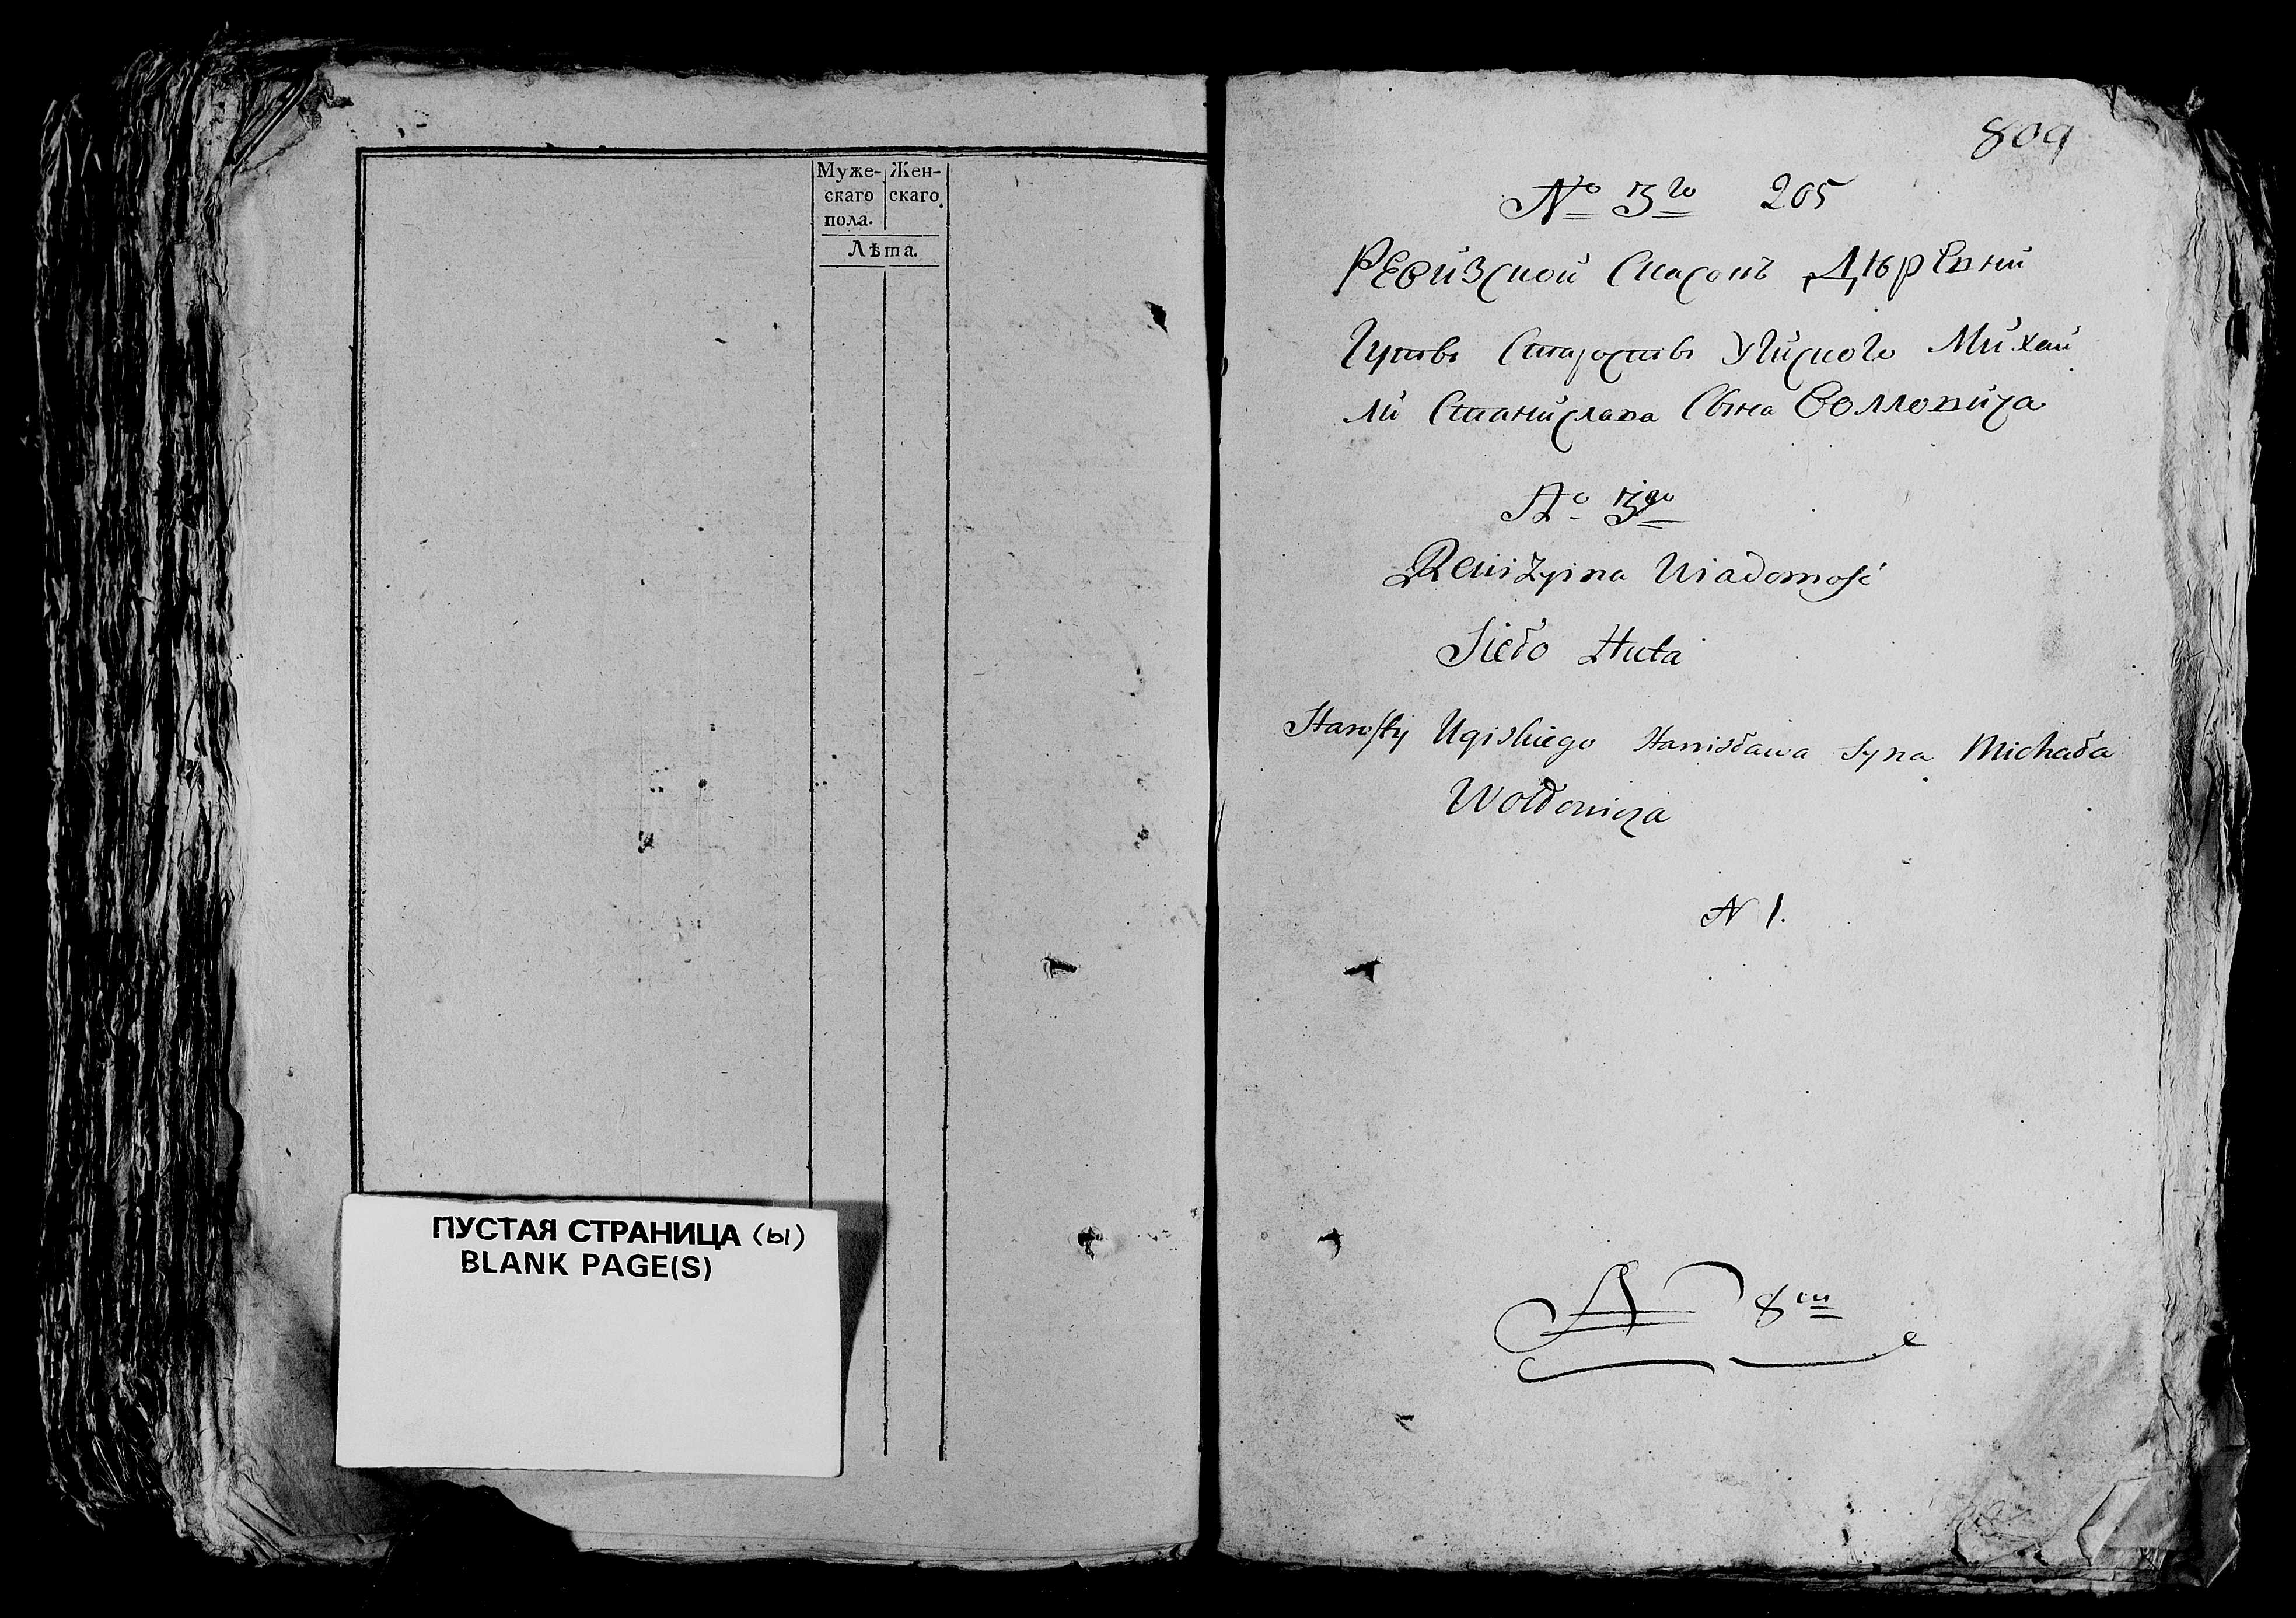 Муже-
скаго
пола.
Жен-
скаго.
Лѣта.
ПУСТАЯ СТРАНИЦА (ы)
BLANK PAGE(S)
809
№ 3го 205
Ревизской Скасокъ Дѣревни
Гутъ Старостъ Угиского Михай
ли Станислава Сына Волловича
№ 3go
Rewizyina Wiadomość
Sieło Huta
Starosty Ugiskiego Stanisława Syna Michała
Wołłowicza
N 1.
8